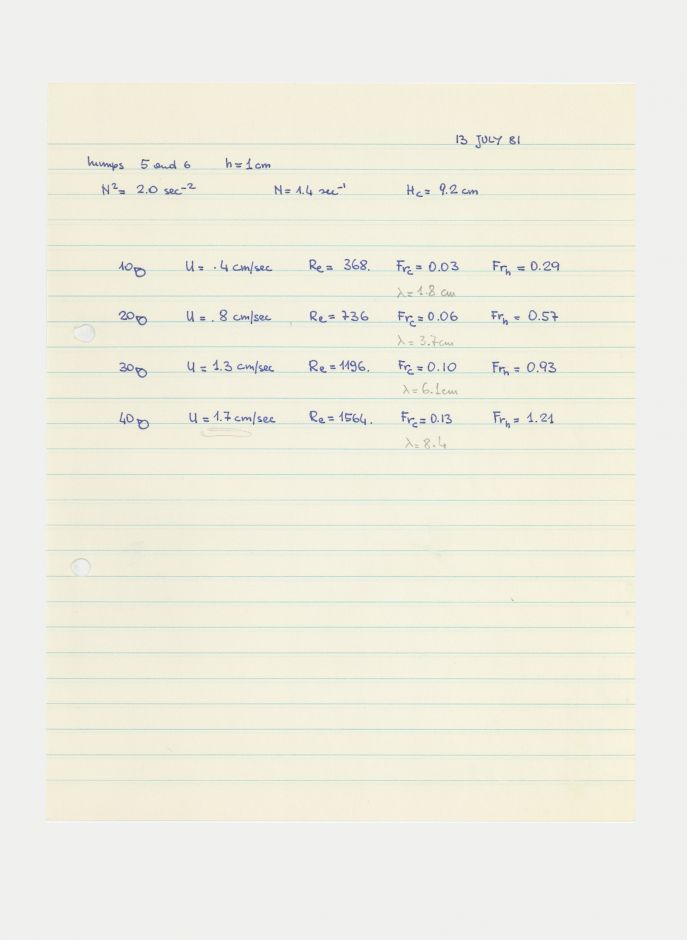 13 JULY 81
humps 5 and 6 h=1cm
N²= 2.0 sec⁻² N= 1.4 sec⁻¹ Hc= 9.2 cm
10 U= .4 cm/sec Re= 368. Frc= 0.03 Frh= 0.29
λ= 1.8 cm
20 U= .8 cm/sec Re= 736 Frc= 0.06 Frh= 0.57
λ= 3.7cm
30 U= 1.3 cm/sec Re= 1196. Frc= 0.10 Frh= 0.93
λ= 6.1cm
40 U= 1.7 cm/sec Re= 1564. Frc= 0.13 Frh= 1.21
λ= 8.4